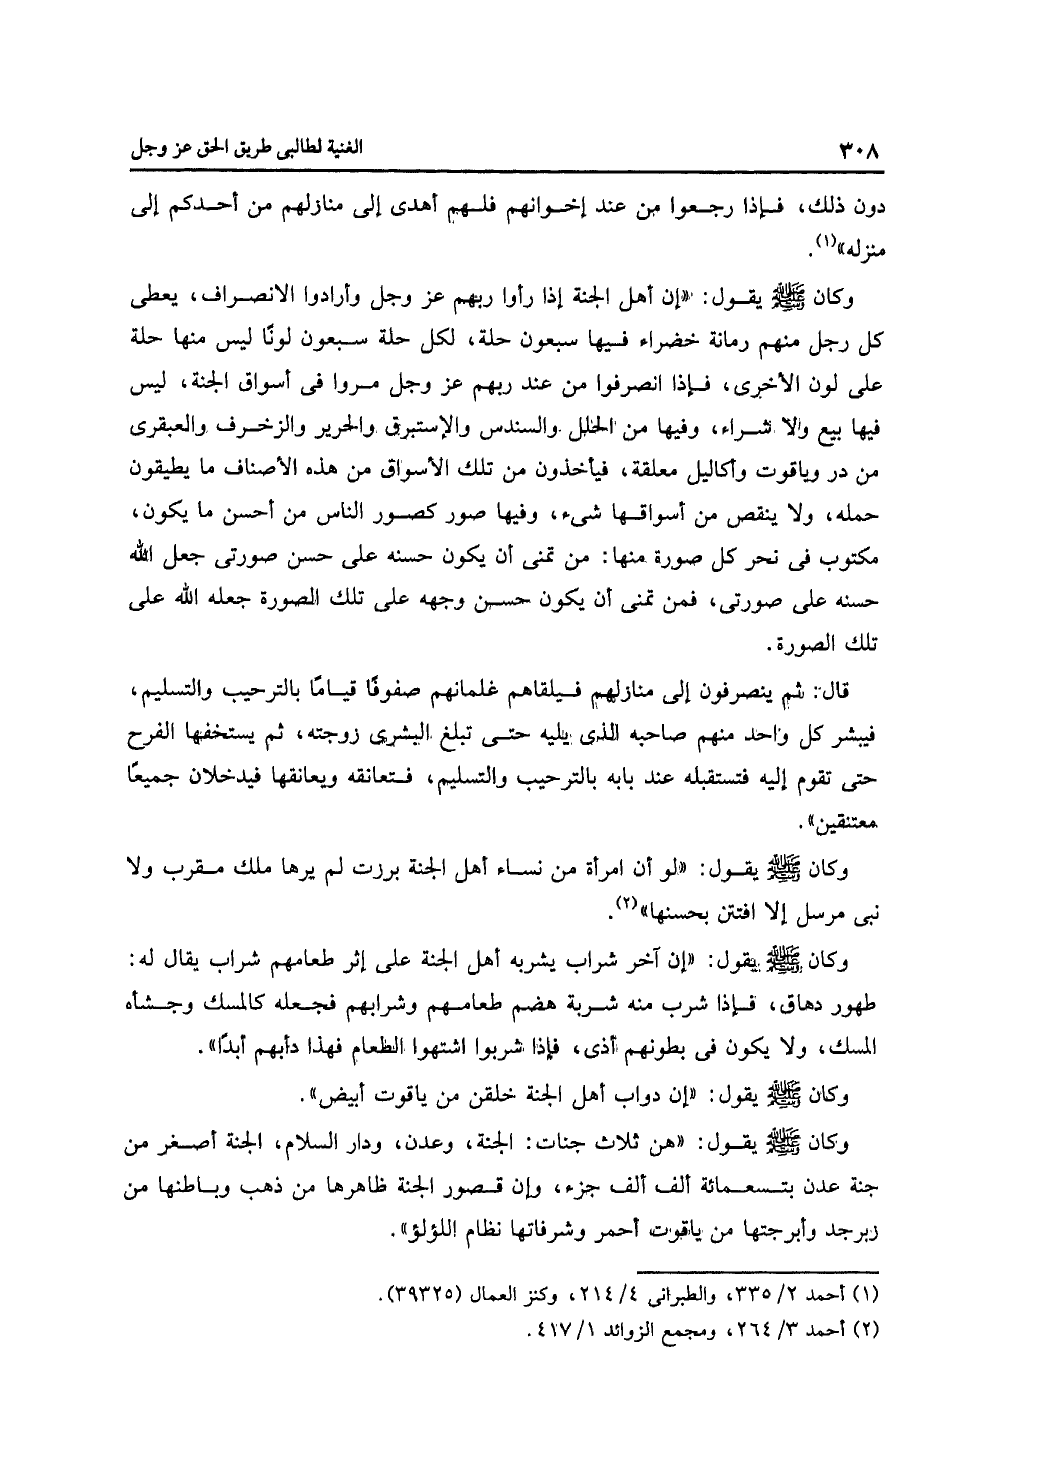 ٣٠٨ الغنية لطالبى طريق الحق عز وجل
دون ذلك، فإذا رجعوا من عند إخوانهم فلهم أهدى إلى منازلهم من أحدكم إلى
منزله»(١).
وكان ﷺ يقول: «إن أهل الجنة إذا رأوا ربهم عز وجل وأرادوا الانصراف، يعطى
كل رجل منهم رمانة خضراء فيها سبعون حلة، لكل حلة سبعون لونًا ليس منها حلة
على لون الأخرى، فإذا انصرفوا من عند ربهم عز وجل مروا فى أسواق الجنة، ليس
فيها بيع ولا شراء، وفيها من الحلل والسندس والإستبرق والحرير والزخرف والعبقرى
من در وياقوت وأكاليل معلقة، فيأخذون من تلك الأسواق من هذه الأصناف ما يطيقون
حمله، ولا ينقص من أسواقها شىء، وفيها صور كصور الناس من أحسن ما يكون،
مكتوب فى نحر كل صورة منها: من تمنى أن يكون حسنه على حسن صورتى جعل الله
حسنه على صورتى، فمن تمنى أن يكون حسن وجهه على تلك الصورة جعله الله على
تلك الصورة.
قال: ثم ينصرفون إلى منازلهم فيلقاهم غلمانهم صفوفًا قيامًا بالترحيب والتسليم،
فيبشر كل واحد منهم صاحبه الذى يليه حتى تبلغ البشرى زوجته، ثم يستخفها الفرح
حتى تقوم إليه فتستقبله عند بابه بالترحيب والتسليم، فتعانقه ويعانقها فيدخلان جميعًا
معتنقين».
وكان ﷺ يقول: «لو أن امرأة من نساء أهل الجنة برزت لم يرها ملك مقرب ولا
نبى مرسل إلا افتتن بحسنها»(٢).
وكان ﷺ يقول: «إن آخر شراب يشربه أهل الجنة على إثر طعامهم شراب يقال له:
طهور دهاق، فإذا شرب منه شربة هضم طعامهم وشرابهم فجعله كالمسك وجشأه
المسك، ولا يكون فى بطونهم أذى، فإذا شربوا اشتهوا الطعام فهذا دأبهم أبدًا».
وكان ﷺ يقول: «إن دواب أهل الجنة خلقن من ياقوت أبيض».
وكان ﷺ يقول: «هن ثلاث جنات: الجنة، وعدن، ودار السلام، الجنة أصغر من
جنة عدن بتسعمائة ألف ألف جزء، وإن قصور الجنة ظاهرها من ذهب وباطنها من
زبرجد وأبرجتها من ياقوت أحمر وشرفاتها نظام اللؤلؤ».
(١) أحمد ٢/ ٣٣٥، والطبرانى ٤/ ٢١٤، وكنز العمال (٣٩٣٢٥).
(٢) أحمد ٣/ ٢٦٤، ومجمع الزوائد ١/ ٤١٧.